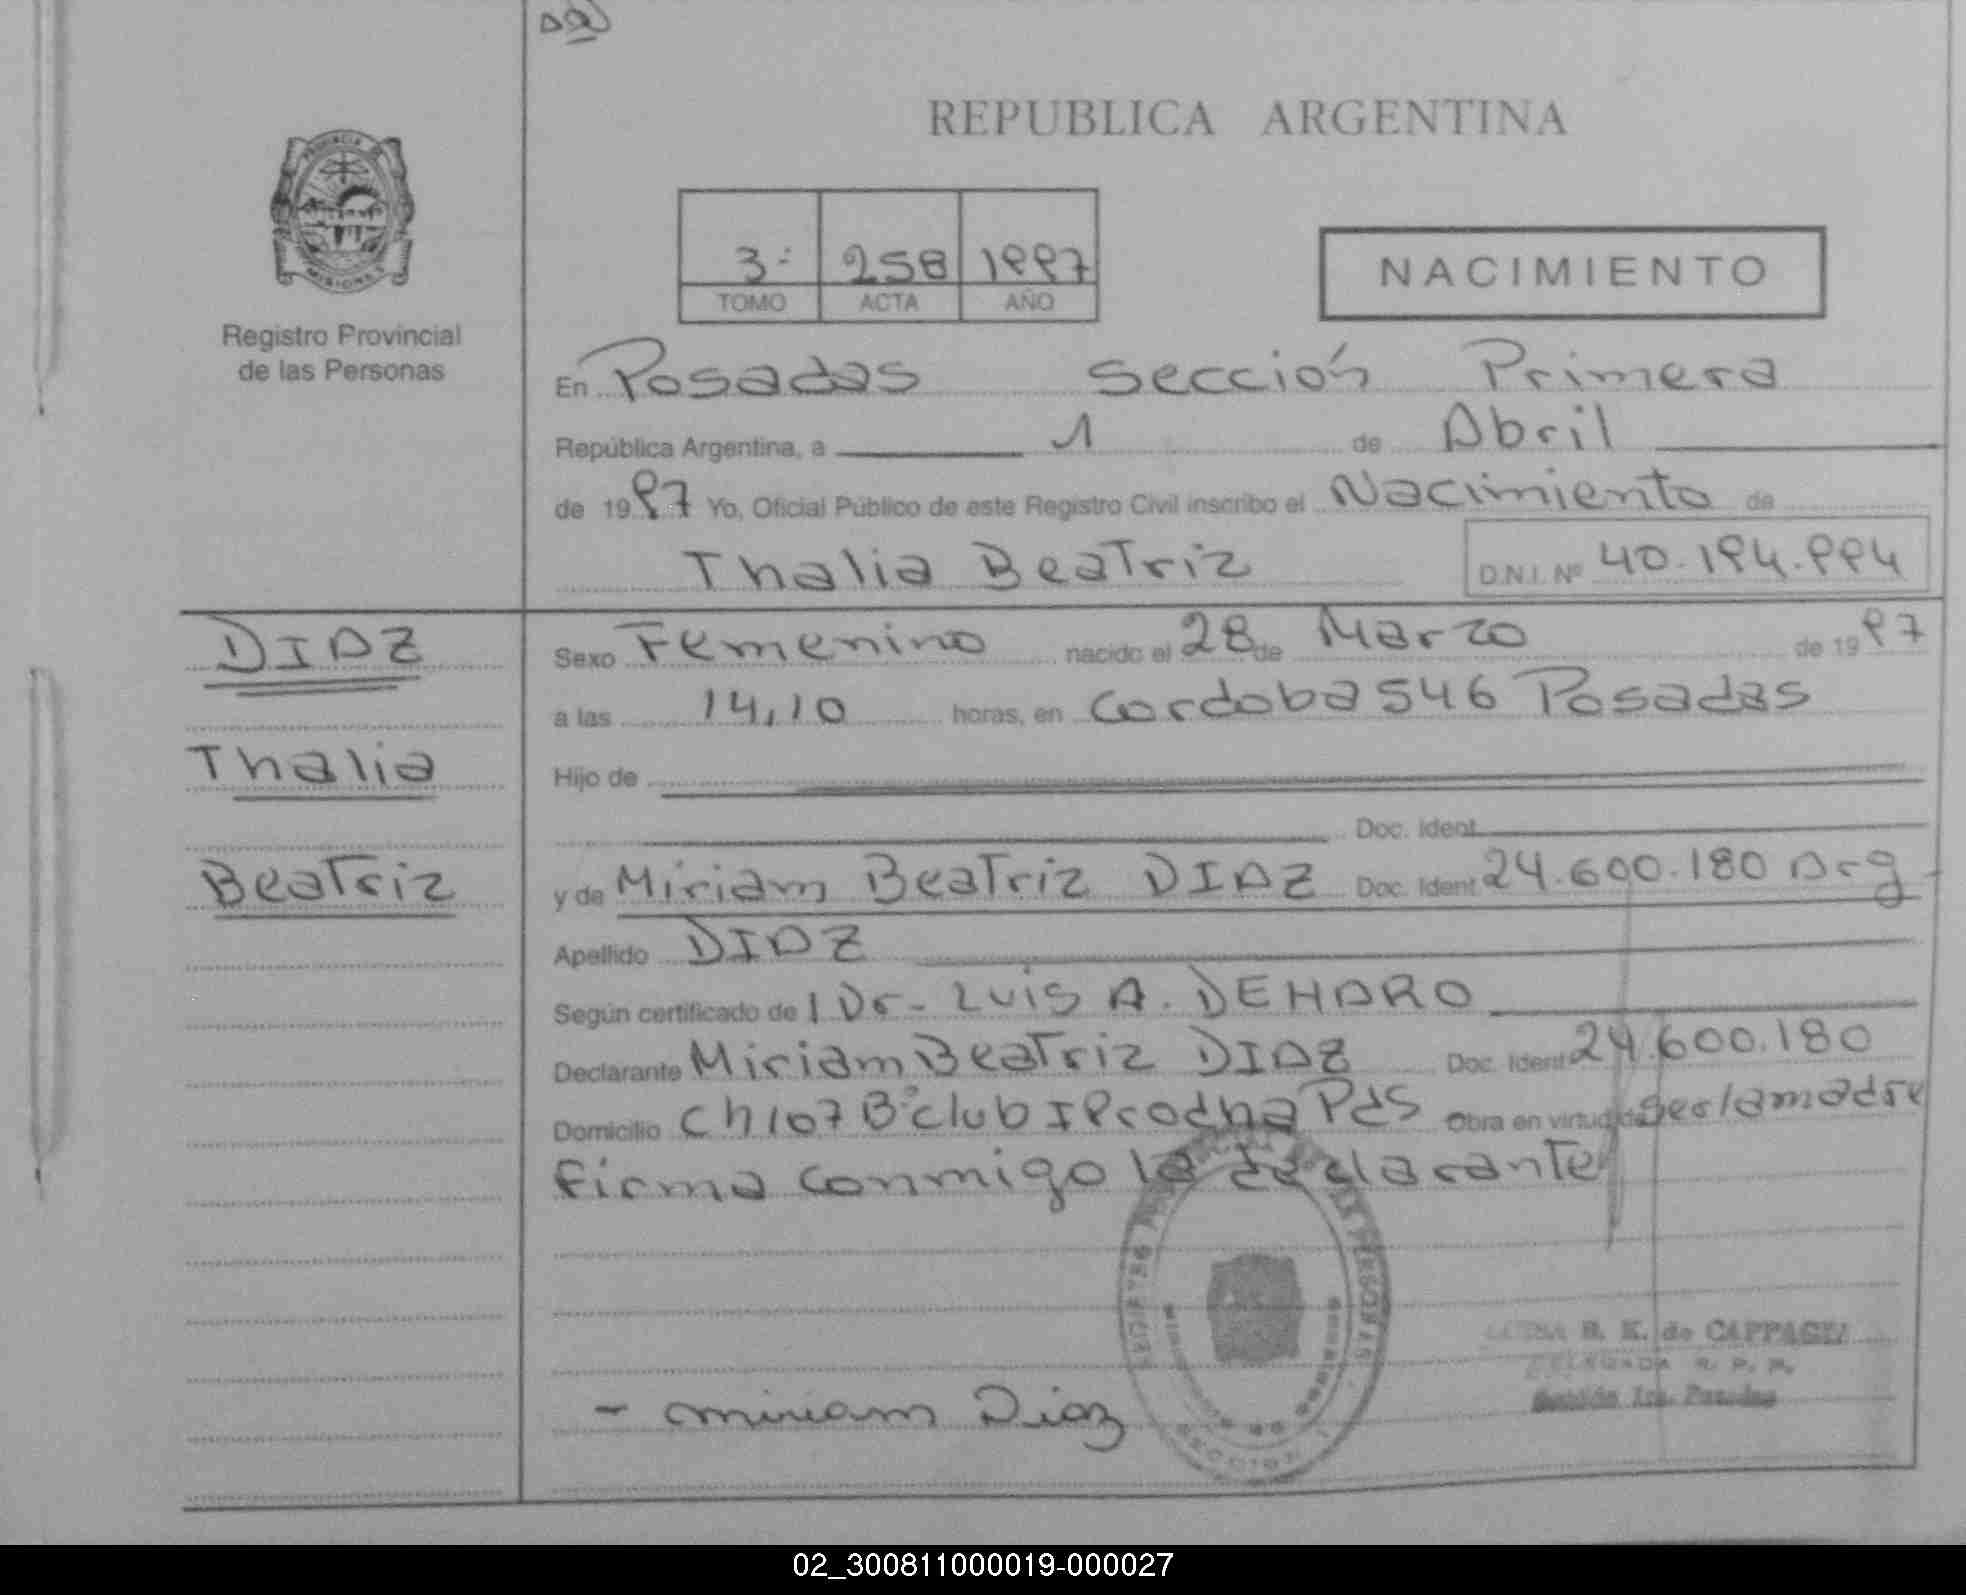 REPUBLICA ARGENTINA
3: 258 1997
TOMO ACTA AÑO
NACIMIENTO
Registro Provincial
de las Personas
En Posadas Sección Primera
República Argentina, a 1 de Abril
de 1997 Yo, Oficial Público de este Registro Civil inscribo el Nacimiento de
Thalia Beatriz D.N.I. Nº 40.194.994
DIAZ
Thalia
Beatriz
Sexo Femenino nacido el 28 de Marzo de 1997
a las 14,10 horas, en Cordoba 546 Posadas
Hijo de
Doc. Ident.
y de Miriam Beatriz DIAZ Doc. Ident 24.600.180 Arg
Apellido DIAZ
Según certificado de l Dr- LUIS A. DEHARO
Declarante Miriam Beatriz DIAZ Doc. Ident 24.600.180
Domicilio Ch 107 Bº club IProdha Pds Obra en virtud de ser la madre
Firma conmigo la declarante
B. K. de CAPPAGLI
DELEGADA R. P. P.
Sección 1ra. Posadas
- miriam Diaz
02_300811000019-000027